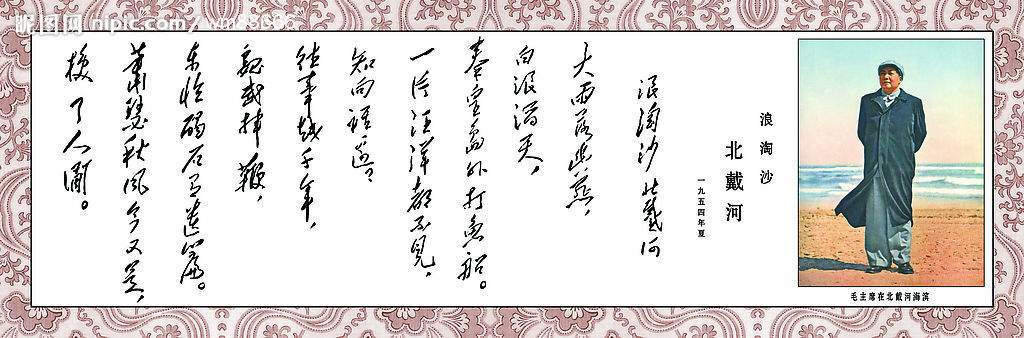 昵图网 nipic.com/wm88666
浪淘沙
北戴河
一九五四年夏
浪淘沙 北戴河
大雨落幽燕，
白浪滔天，
秦皇岛外打鱼船。
一片汪洋都不见，
知向谁边？
往事越千年，
魏武挥鞭，
东临碣石有遗篇。
萧瑟秋风今又是，
换了人间。
毛主席在北戴河海滨